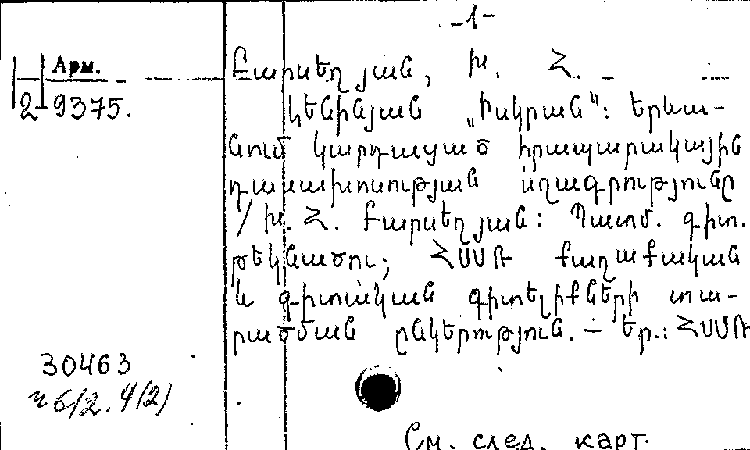 -1-
Арм.
2-9375.
Բարսեղյան, Խ. Հ.
Լենինյան „Իսկրան“: Երևա-
նում կարդացած հրապարակային
դասախոսության սղագրությունը
/ Խ. Հ. Բարսեղյան: Պատմ. գիտ.
թեկնածու; ՀՍՍՌ քաղաքական
և գիտական գիտելիքների տա-
րածման ընկերություն. — Եր.: ՀՍՍՌ
30463
н 6/2. 4(2)
См. след. карт.